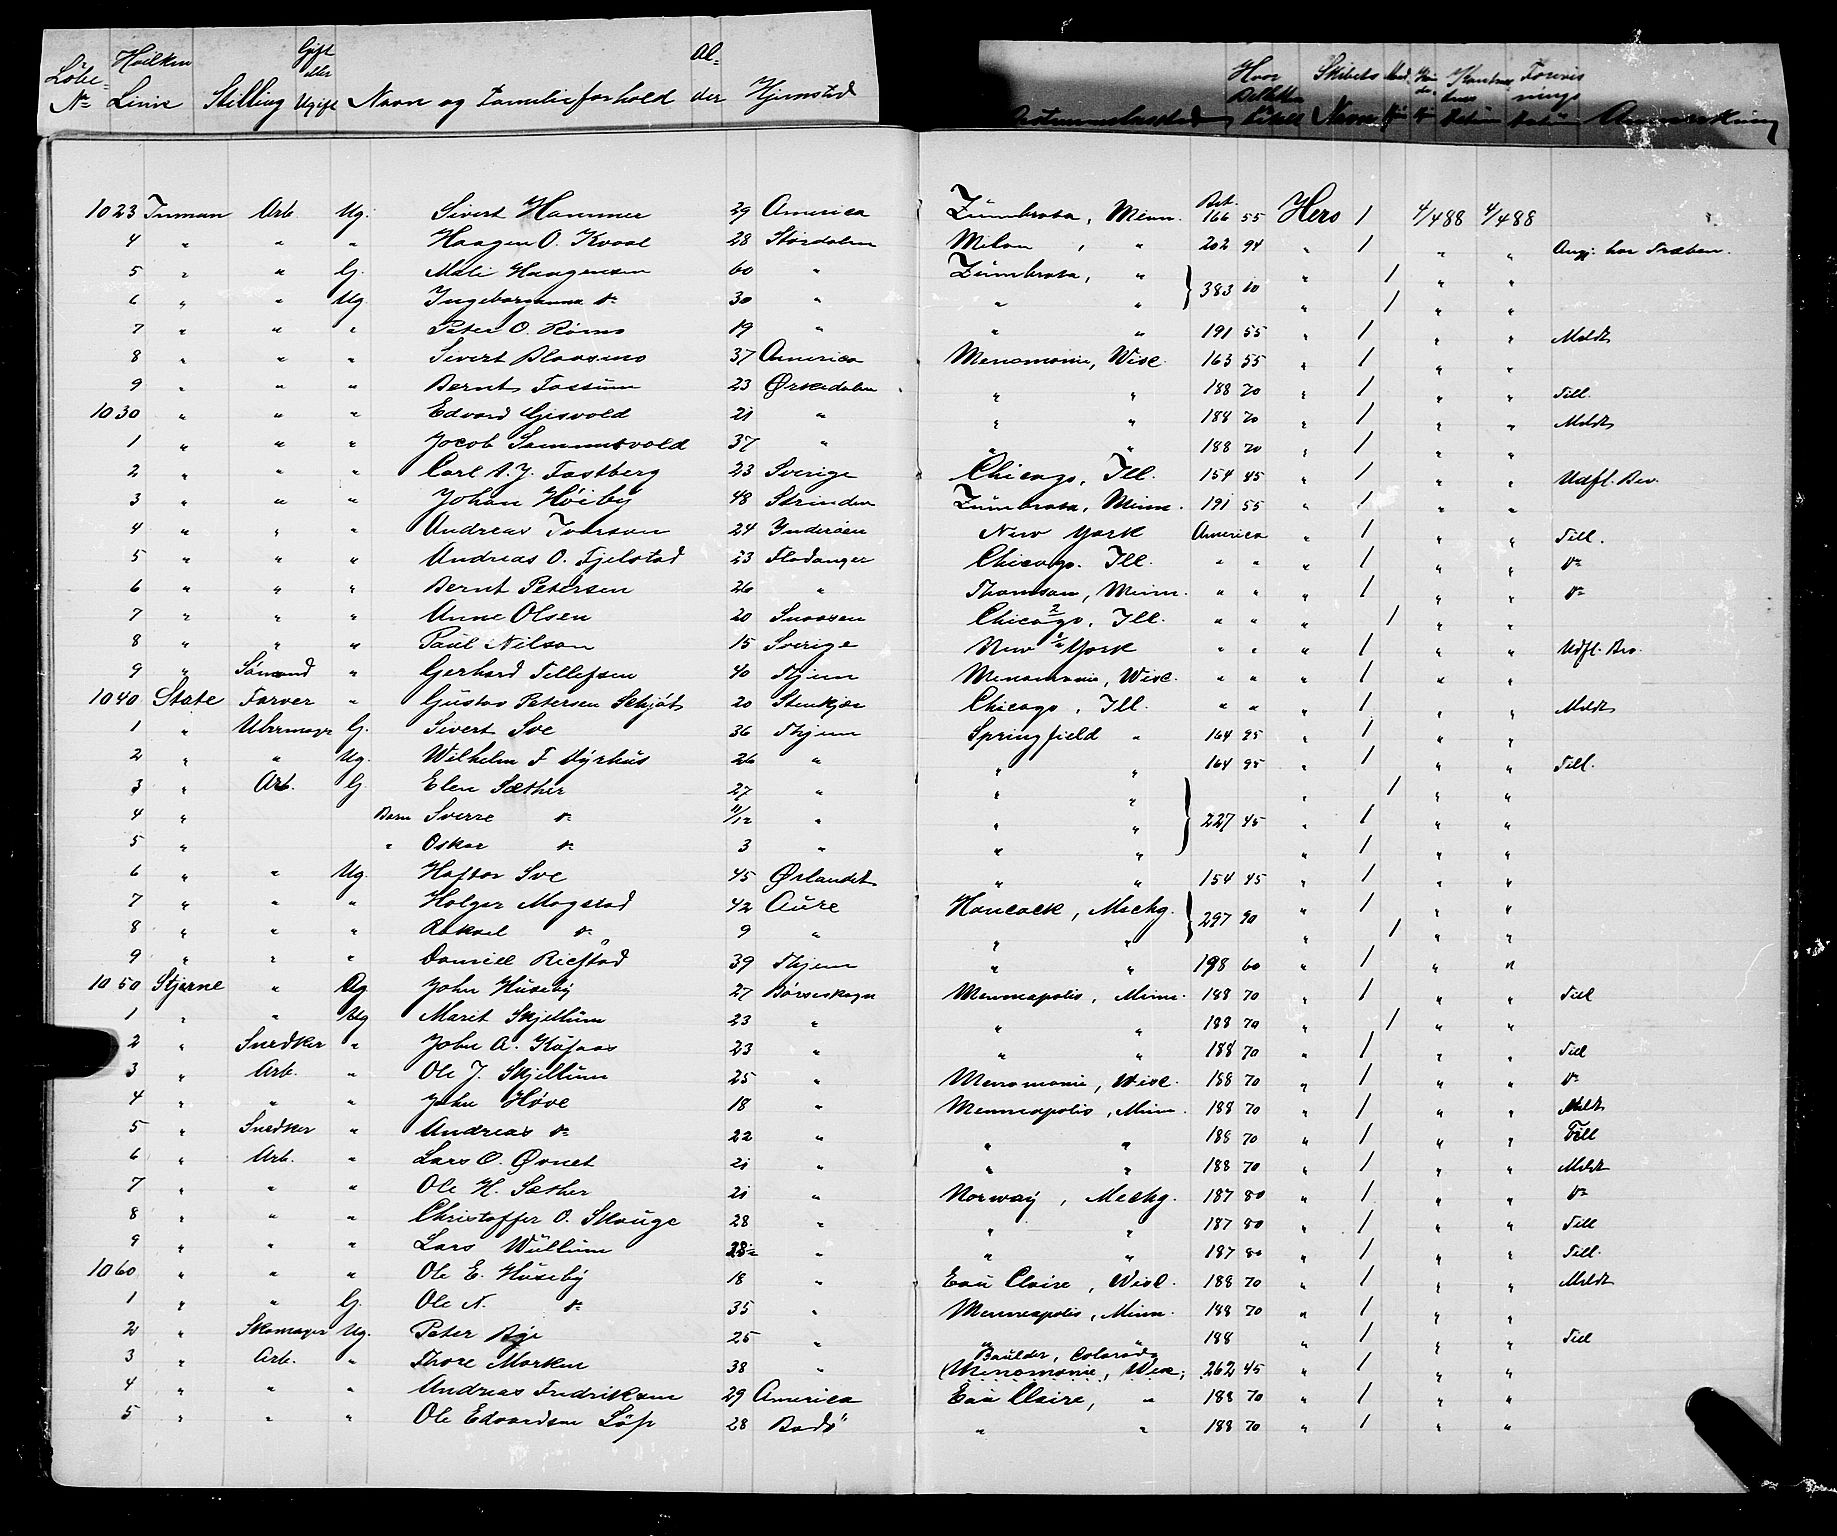 Löbe- Nr. Hvilken Linie Stilling Gift eller Ugift Navn og Familieforhold Alder Hjemsted Hvor Billetten Skibets Navn Anmerkning
1023 Inman Arb. Ug. Sivert Hammer 29 America Zumbrota, Minn. 166 55 Hero 1 4/4 88 4/4 88
4 " " " Haagen O. Kvaal 28 Stördalen Milan, " 202 94 " 1 " "
5 " " G. Mali Haagensen 60 " Zumbrota, " 383 10 " 1 " "
6 " " Ug. Ingeborganna do 30 " " " " 1 " "
7 " " " Peter O. Römo 19 " " " 191 55 " 1 " " Meldt
8 " " " Sivert Blaasmo 37 America Menomonie, Wisc. 163 55 " 1 " "
9 " " " Bernt Fossum 23 Ørkedalen " " 188 70 " 1 " " Till.
1030 " " " Edvard Gisvold 21 " " " 188 70 " 1 " " Meldt
1 " " " Jocob Sommervold 37 " " 188 70 " 1 " "
2 " " " Carl A. J. Fastberg 23 Sverige Chicago, Ill. 154 45 " 1 " " Udfl. Bev.
3 " " " Johan Høiby 48 Strinden Zumbrota, Minn. 191 55 " 1 " "
4 " " " Andreas Iversen 24 Ynderöen New York America " 1 " " Till.
5 " " " Andreas O. Fjelstad 23 Fladanger Chicago. Ill. " " " 1 " " do
6 " " " Bernt Petersen 26 " Thomson, Minn. " " " 1 " " do
7 " " " Anne Olsen 20 Snaasen Chicago, Ill. " " " 1 " "
8 " " " Paul Nilsen 15 Sverige New York " " " 1 " " Udfl. Bev.
9 " Sömand " Gerhard Tellefsen 40 Thjem Menomonie, Wisc. " " " 1 " "
1040 State Farver " Gustav Petersen Schjöt 20 Stenkjær Chicago, Ill. " " " 1 " " Meldt
1 " Uhrmager G. Sivert Sve 36 Thjem Springfield " 164 95 " 1 " "
2 " " Ug. Wilhelm F. Dyrhus 26 " " " 164 95 " 1 " " Till.
3 " Arb. G. Elen Sæther 27 " " " " 1 " "
4 " Barn Sverre do 11/12 " " " 227 45 " 1 " "
5 " " Oskar do 3 " " " " 1 " "
6 " " Ug. Haftor Sve 45 Ørlandet " " 154 45 " 1 " "
7 " " " Holger Mogstad 42 Aure Hancock, Michg. 297 90 " 1 " "
8 " " " Rakael do 9 " " " " 1 " "
9 " " " Daniell Riestad 39 Thjem " " 198 60 " 1 " "
1050 Stjerne " Ug John Huseby 27 Börseskogn Menneapolis, Minn. 188 70 " 1 " " Till
1 " " Ug Marit Skjellum 23 " " " 188 70 " 1 " "
2 " Snedker " John A. Kufaas 23 " " " 188 70 " 1 " " Till
3 " Arb. " Ole J. Skjellum 25 " Menomonie, Wisc. 188 70 " 1 " " do
4 " " " John Høve 18 " Menneapolis, Minn. 188 70 " 1 " " Meldt
5 " Snedker " Andreas do 22 " " " 188 70 " 1 " " Till
6 " Arb. " Lars O. Øvnet 21 " " " 188 70 " 1 " " Meldt
7 " " " Ole H. Sæther 21 " Norway, Michg. 187 80 " 1 " " do
8 " " " Christoffer O. Skauge 28 " " " 187 80 " 1 " " Till
9 " " " Lars Wullum 28 " " " 187 80 " 1 " " Till.
1060 " " " Ole E. Huseby 18 " Eau Claire, Wisc. 188 70 " 1 " " Meldt
1 " " G. Ole N. do 35 " Menneapolis, Minn. 188 70 " 1 " "
2 " Skomager Ug. Peter Bye 25 " " 188 " 1 " " Till
Baulder, Colorado
3 " Arb. " Thore Morken 38 " Menomonie, Wisc. 262 45 " 1 " "
4 " " " Andreas Fredriksen 29 America Eau Claire, " 188 70 " 1 " "
5 " " " Ole Edvardsen 28 Bodö " " 188 70 " 1 " "